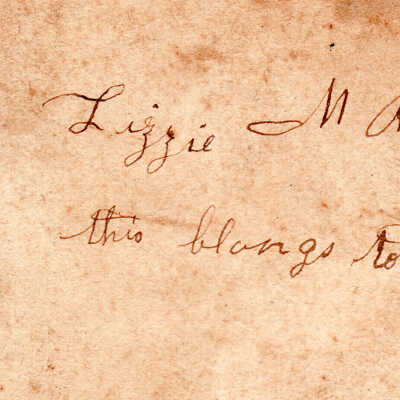 Lizzie M
this blongs to